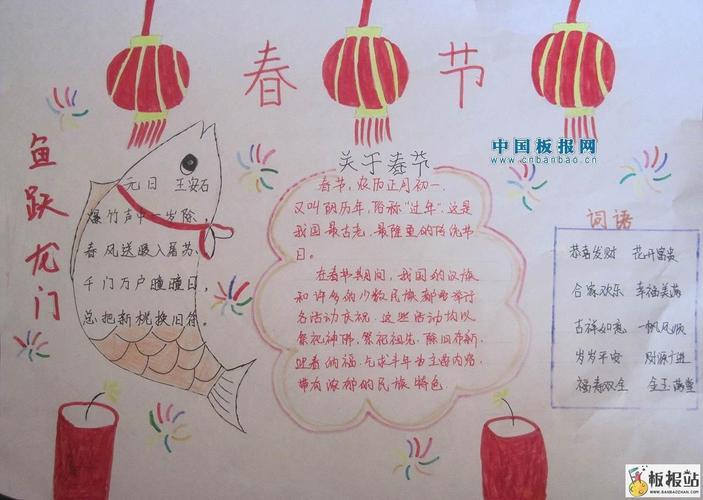 春节
中国板报网
www.cnbanbao.cn
鱼跃龙门
元日 王安石
爆竹声中一岁除，
春风送暖入屠苏，
千门万户曈曈日，
总把新桃换旧符。
关于春节
春节，农历正月初一，
又叫阴历年，俗称“过年”，这是
我国最古老、最隆重的传统节
日。
在春节期间，我国的汉族
和许多的少数民族都要举行
各活动庆祝，这些活动均以
祭祀神佛，祭祀祖先，除旧布新，
迎春纳福，乞求丰年为主要内容，
带有浓郁的民族特色
词语
恭喜发财 花开富贵
合家欢乐 幸福美满
吉祥如意 一帆风顺
岁岁平安 财源广进
福寿双全 金玉满堂
板报站
WWW.BANBAOZHAN.COM